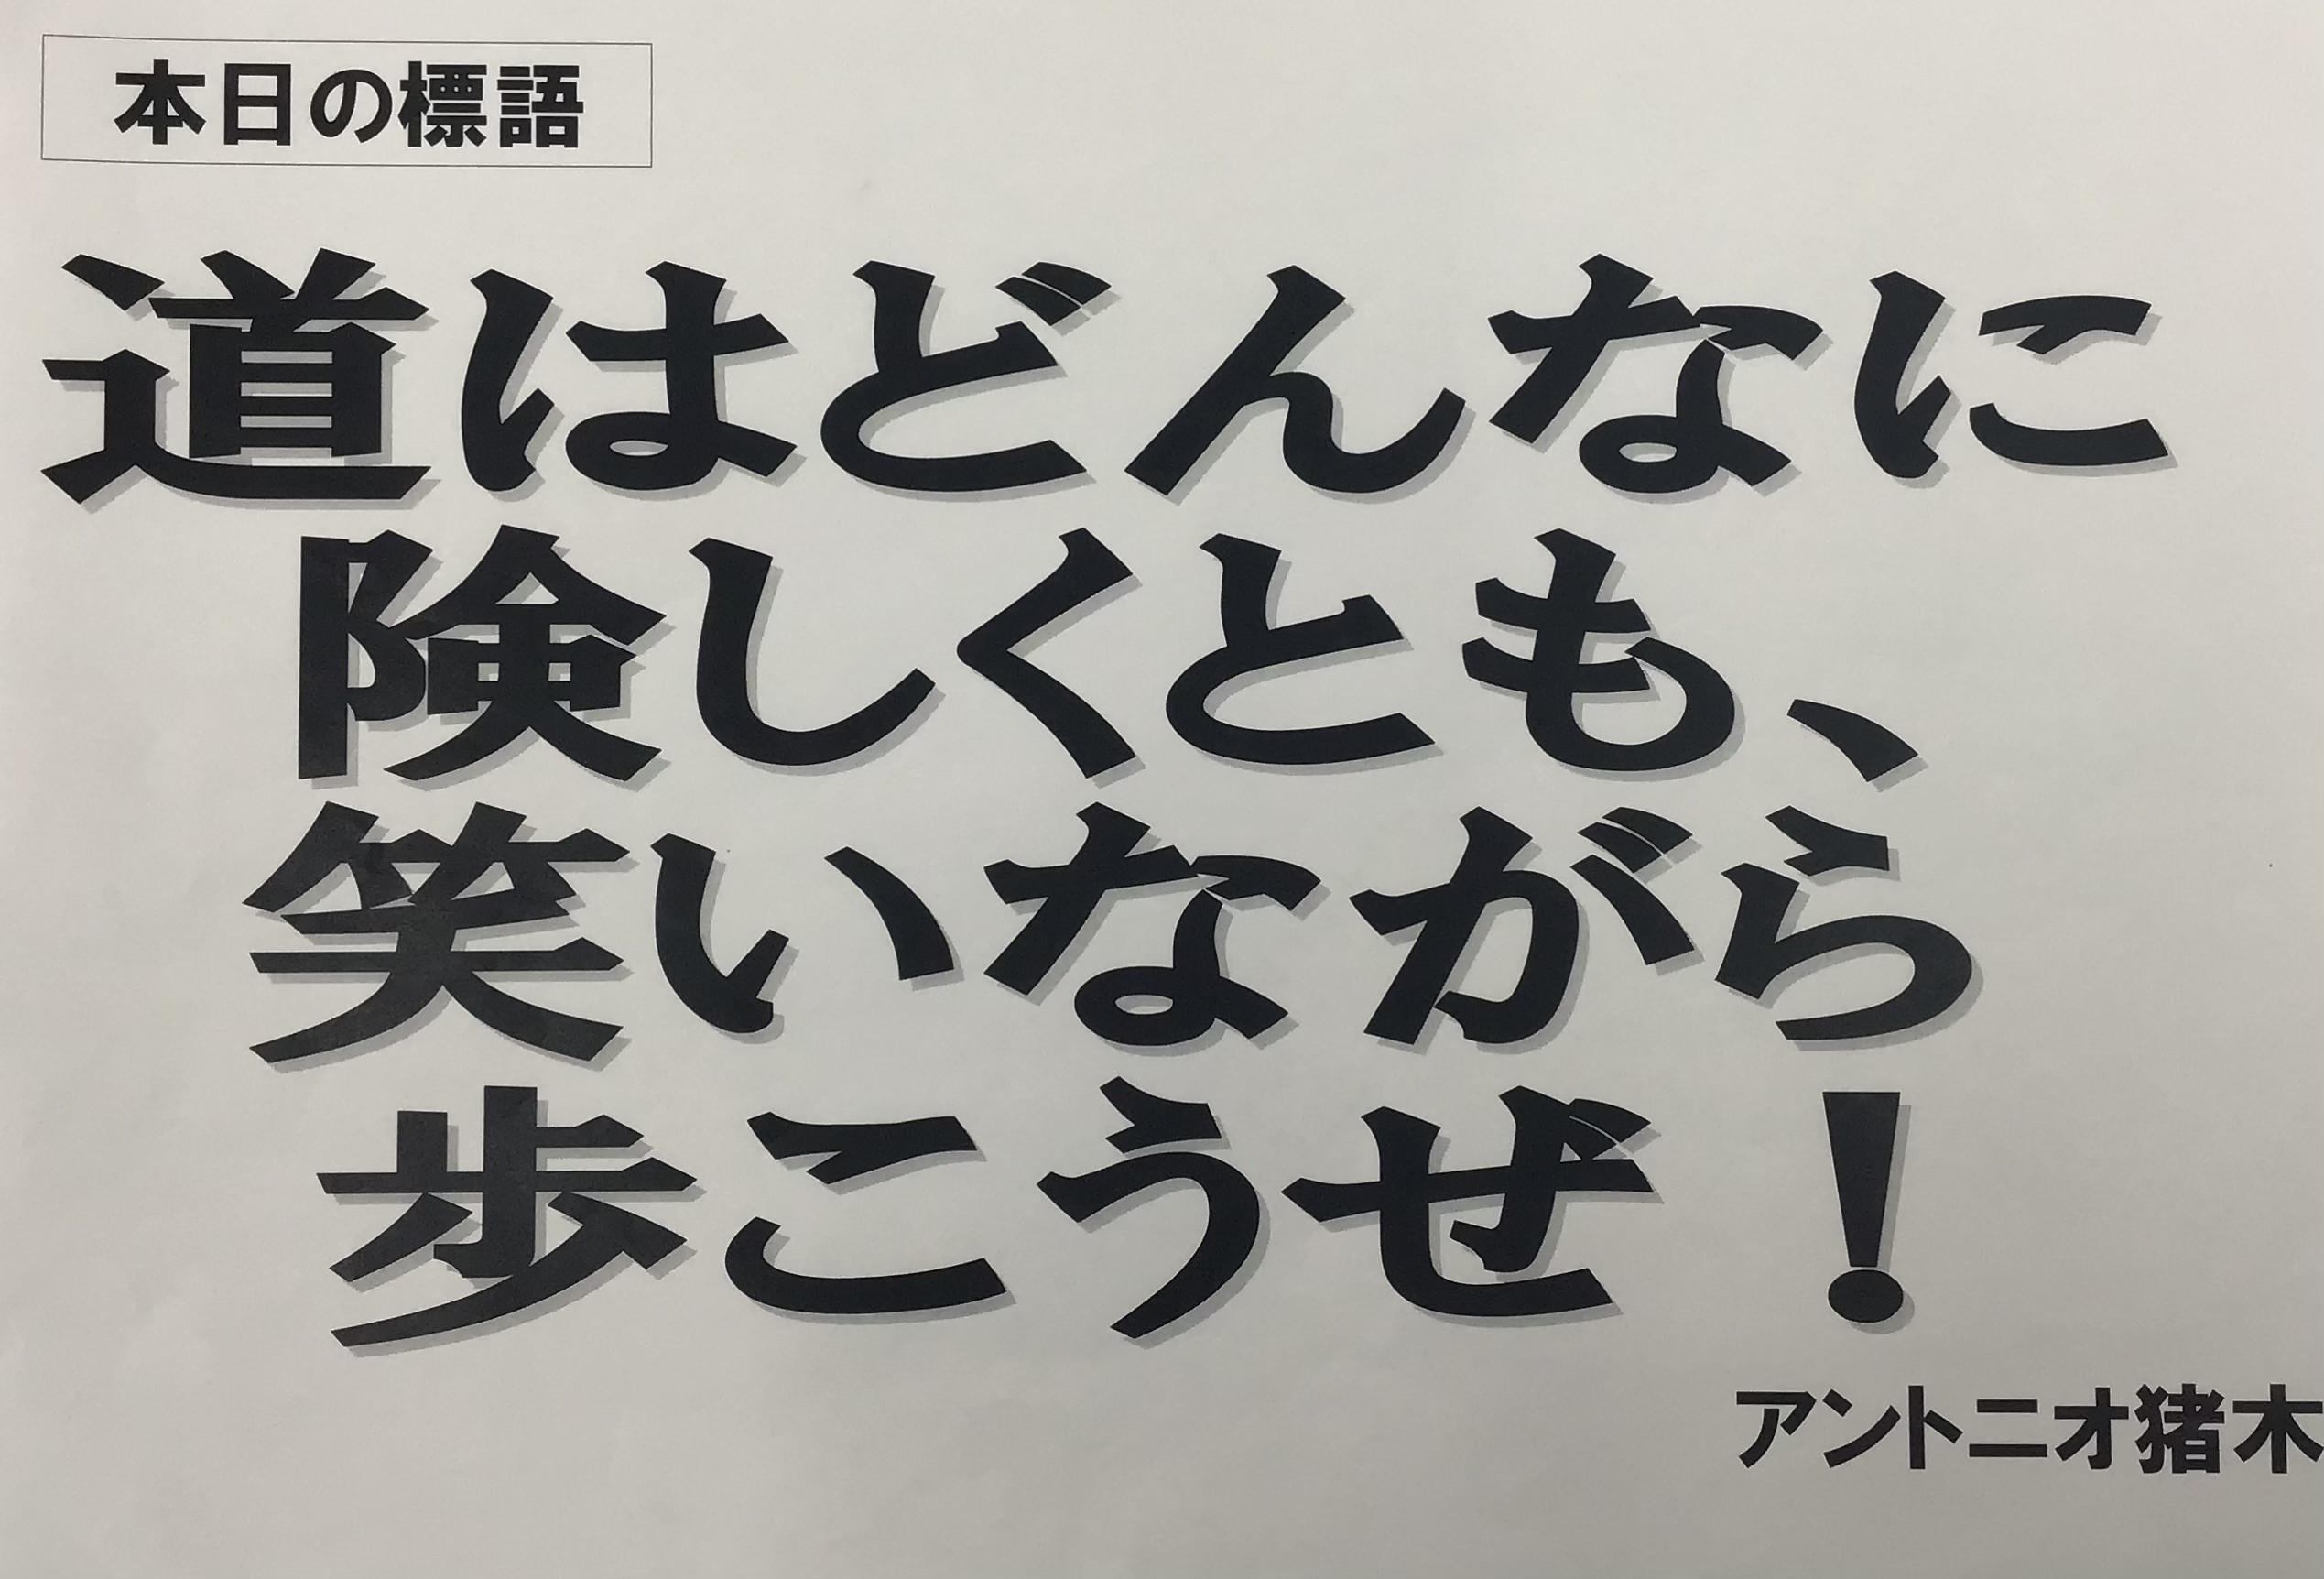 本日の標語
道はどんなに
険しくとも、
笑いながら
歩こうぜ！
アントニオ猪木